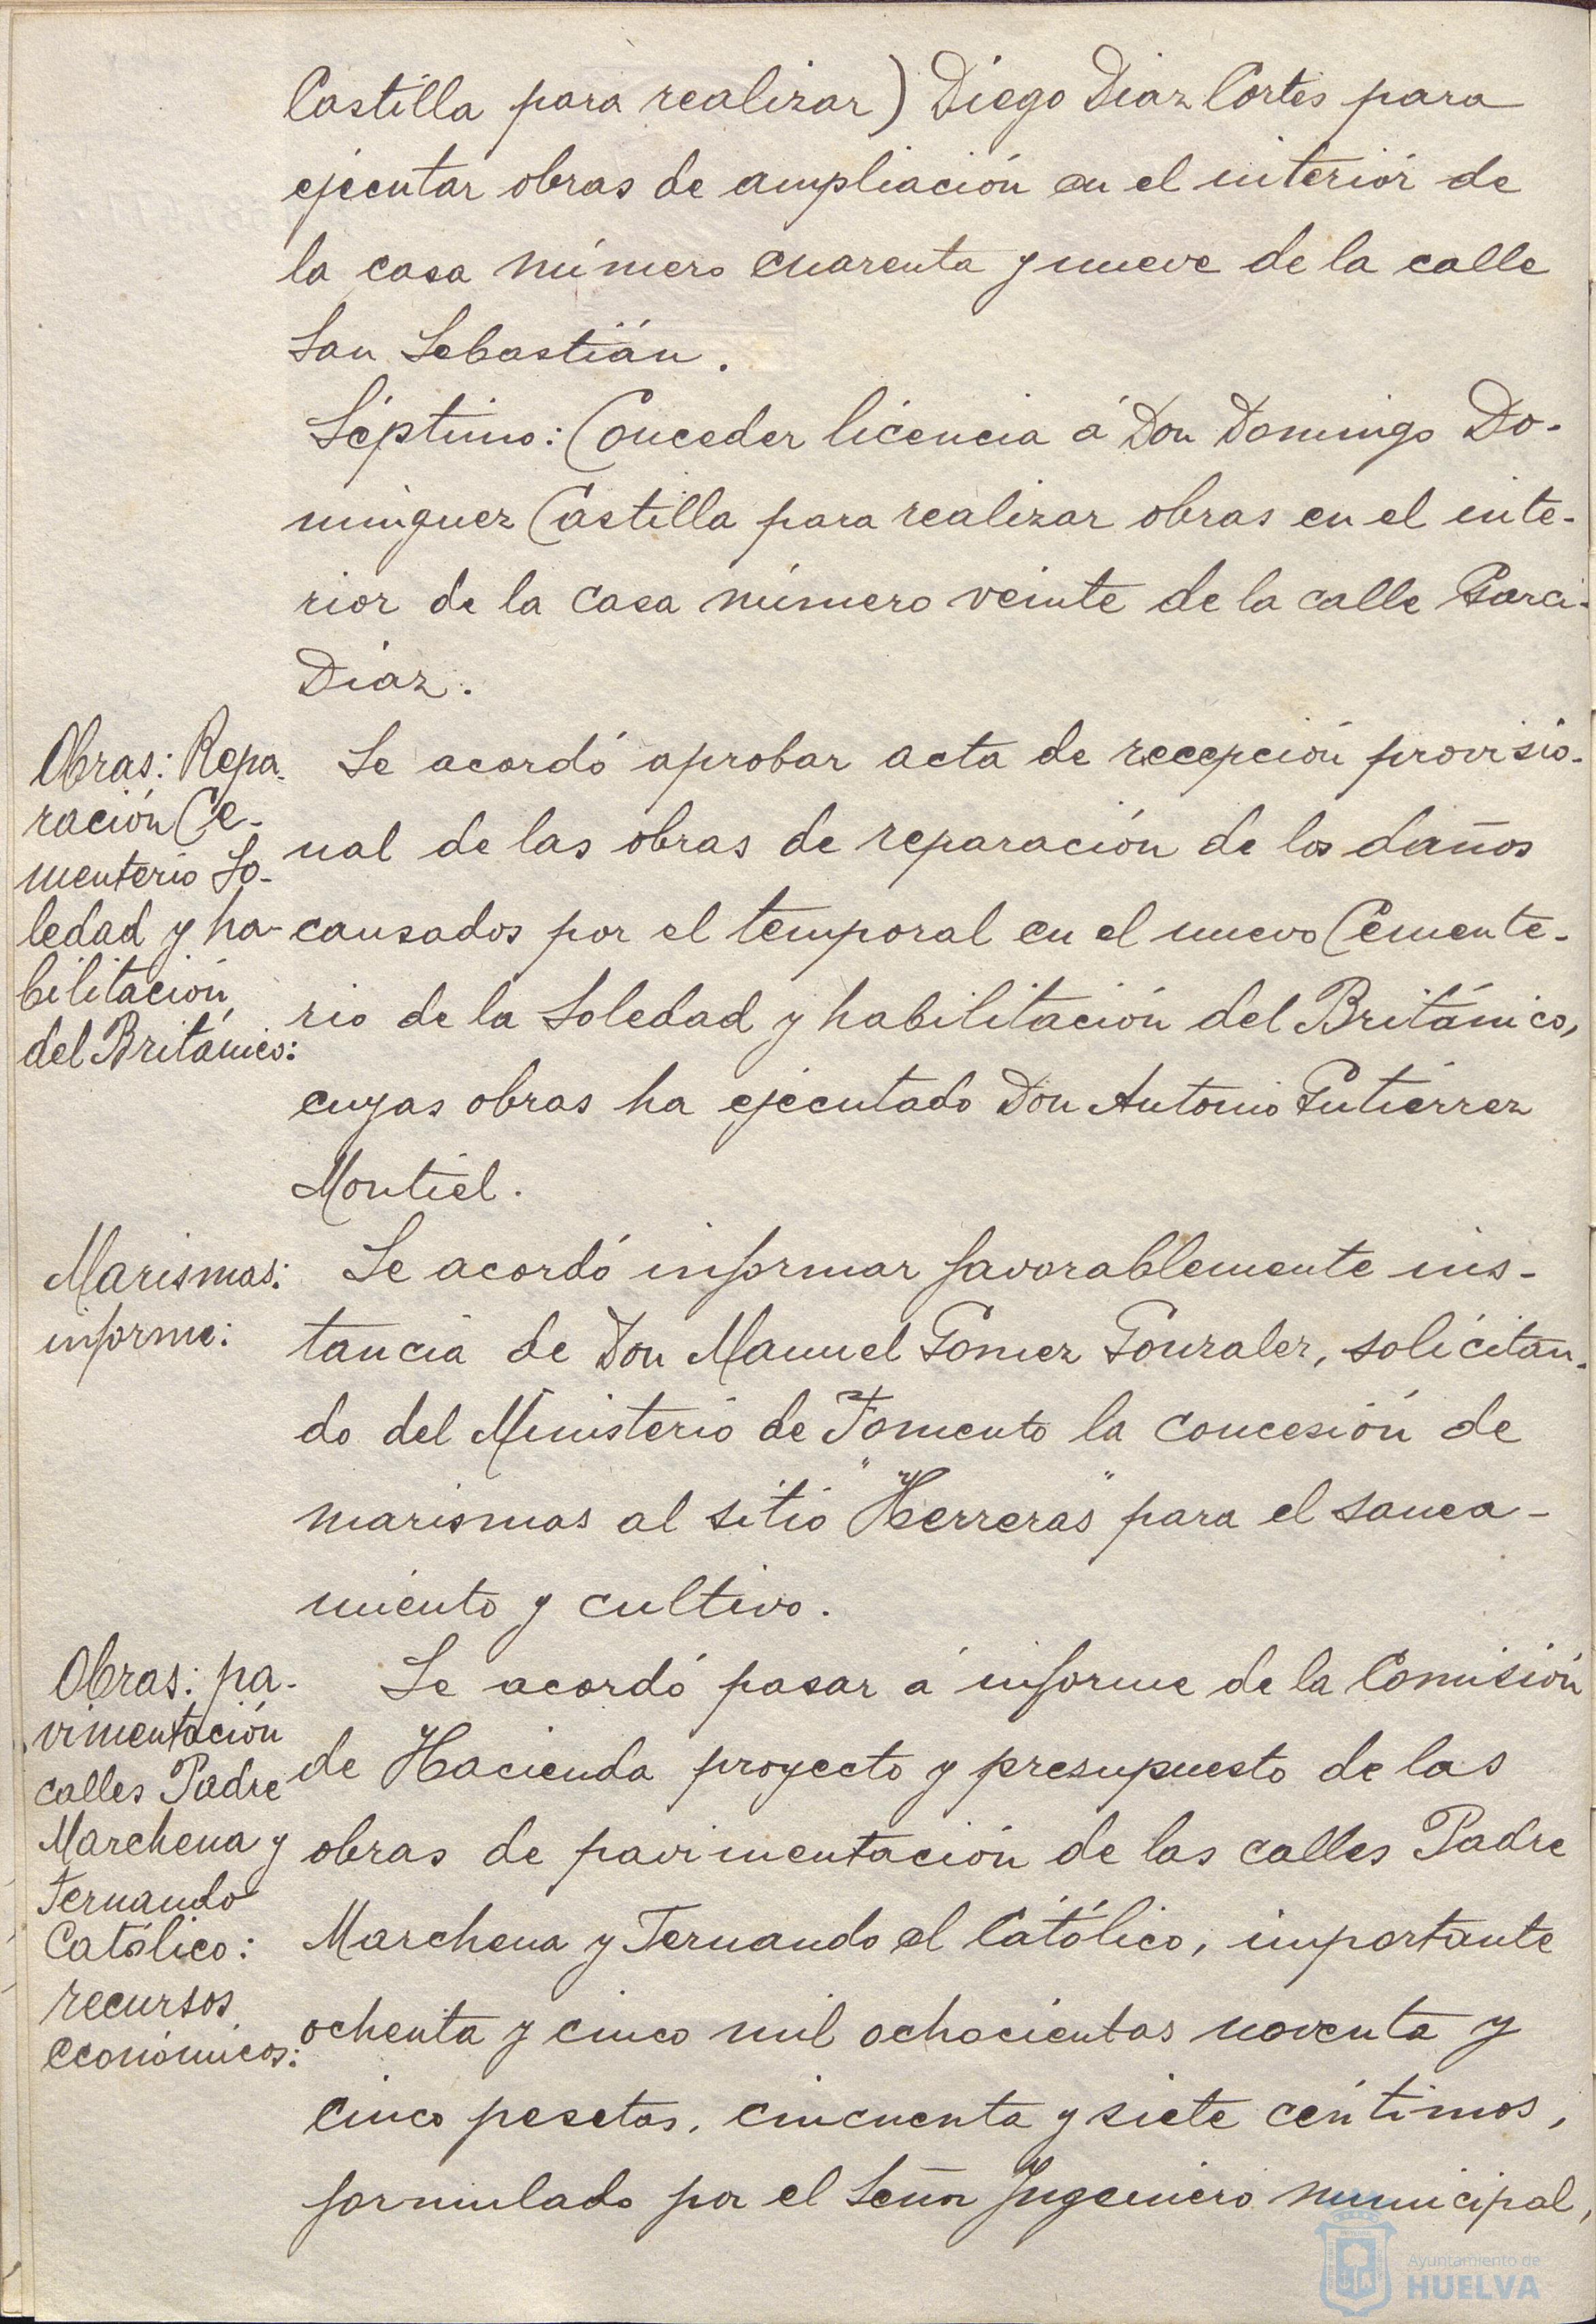 Castilla para realizar) Diego Diaz Cortes para
ejecutar obras de ampliación en el interior de
la casa número cuarenta y nueve de la calle
San Sebastián.
Séptimo: Conceder licencia á Don Domingo Do-
minguez Castilla para realizar obras en el inte-
rior de la casa número veinte de la calle Garci-
Diaz.
Obras: Repa-
ración Ce-
menterio So-
ledad y ha-
bilitación
del Británico:
Se acordó aprobar acta de recepción provisio-
nal de las obras de reparación de los daños
causados por el temporal en el nuevo Cemente-
rio de la Soledad y habilitación del Británico,
cuyas obras ha ejecutado Don Antonio Gutiérrez
Montiel.
Marismas:
informe:
Se acordó informar favorablemente ins-
tancia de Don Manuel Gomez Gonzalez, solicitan-
do del Ministerio de Fomento la concesión de
marismas al sitio "Herreras" para el sanea-
miento y cultivo.
Obras: pa-
vimentación
calles Padre
Marchena y
Fernando
Católico:
recursos
económicos:
Se acordó pasar á informe de la Comisión
de Hacienda proyecto y presupuesto de las
obras de pavimentación de las calles Padre
Marchena y Fernando el Católico, importante
ochenta y cinco mil ochocientas noventa y
cinco pesetas, cincuenta y siete céntimos,
formulado por el Señor Ingeniero municipal,
Ayuntamiento de
HUELVA